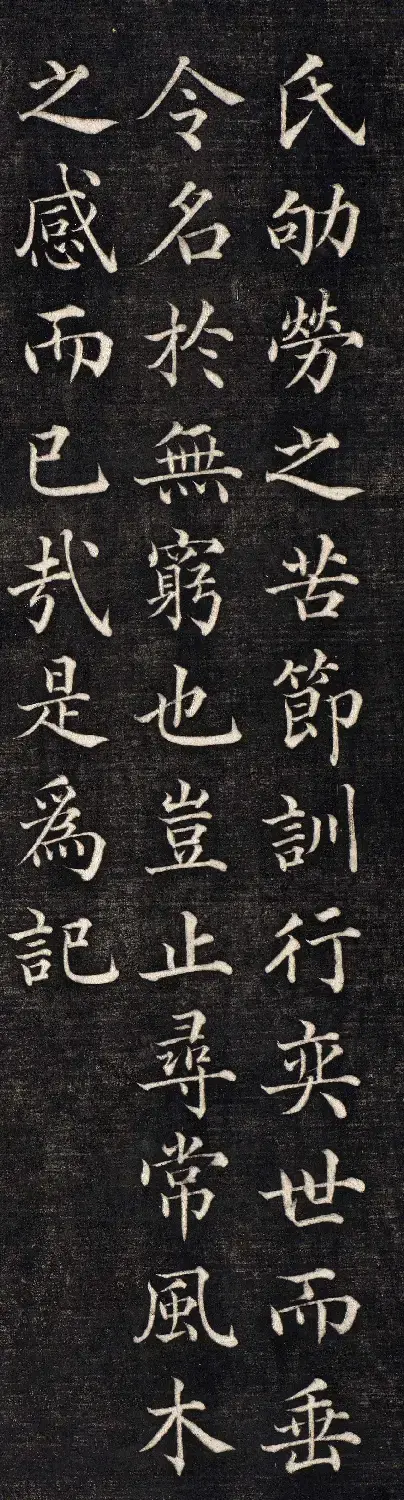 氏劬勞之苦節訓行奕世而垂
令名於無窮也豈止尋常風木
之感而已㢤是為記